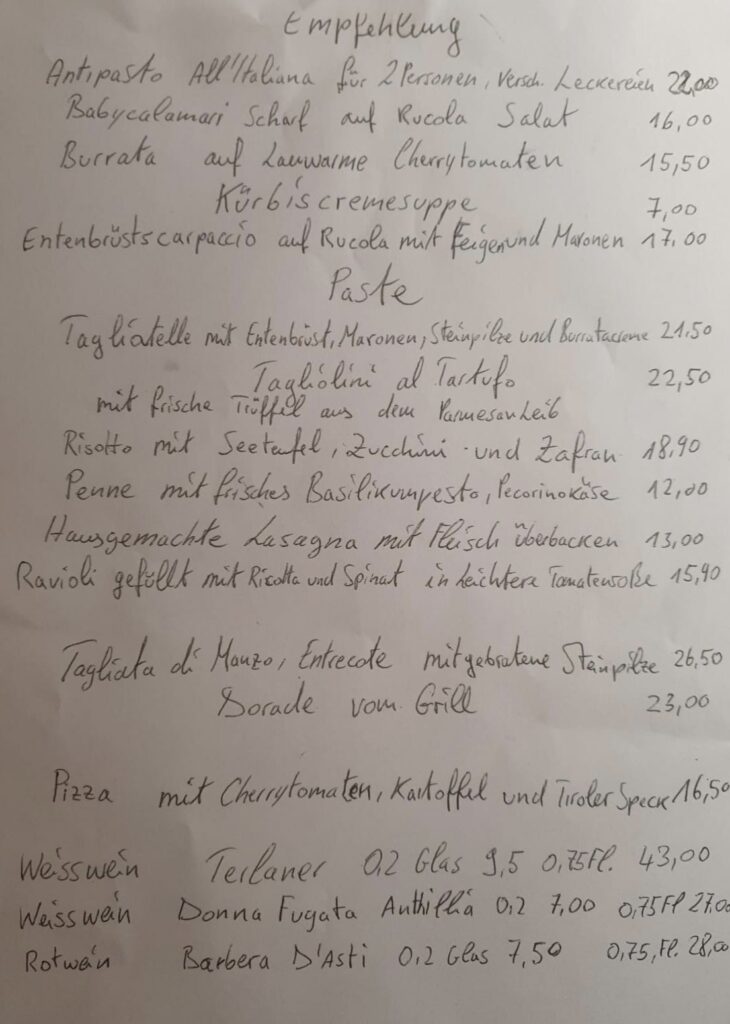 Empfehlung
Antipasto All'Italiana für 2 Personen, Versch. Leckereien 22,00
Babycalamari Scharf auf Rucola Salat 16,00
Burrata auf Lauwarme Cherrytomaten 15,50
Kürbiscremesuppe 7,00
Entenbrüstscarpaccio auf Rucola mit Feigen und Maronen 17,00
Paste
Tagliatelle mit Entenbrüst, Maronen, Steinpilze und Burratacreme 21,50
Tagliolini al Tartufo 22,50
mit frische Trüffel aus dem Parmesan Leib
Risotto mit Seeteufel, Zucchini und Zafran 18,90
Penne mit frisches Basilikumpesto, Pecorinokäse 12,00
Hausgemachte Lasagna mit Fleisch überbacken 13,00
Ravioli gefüllt mit Ricotta und Spinat in Leichtere Tomatensoße 15,90
Tagliata di Manzo, Entrecote mit gebratene Steinpilze 26,50
Dorade vom Grill 23,00
Pizza mit Cherrytomaten, Kartoffel und Tiroler Speck 16,50
Weisswein Terlaner 0,2 Glas 9,5 0,75 Fl. 43,00
Weisswein Donna Fugata Anthillia 0,2 7,00 0,75 Fl 27,00
Rotwein Barbera D'Asti 0,2 Glas 7,50 0,75, Fl. 28,00